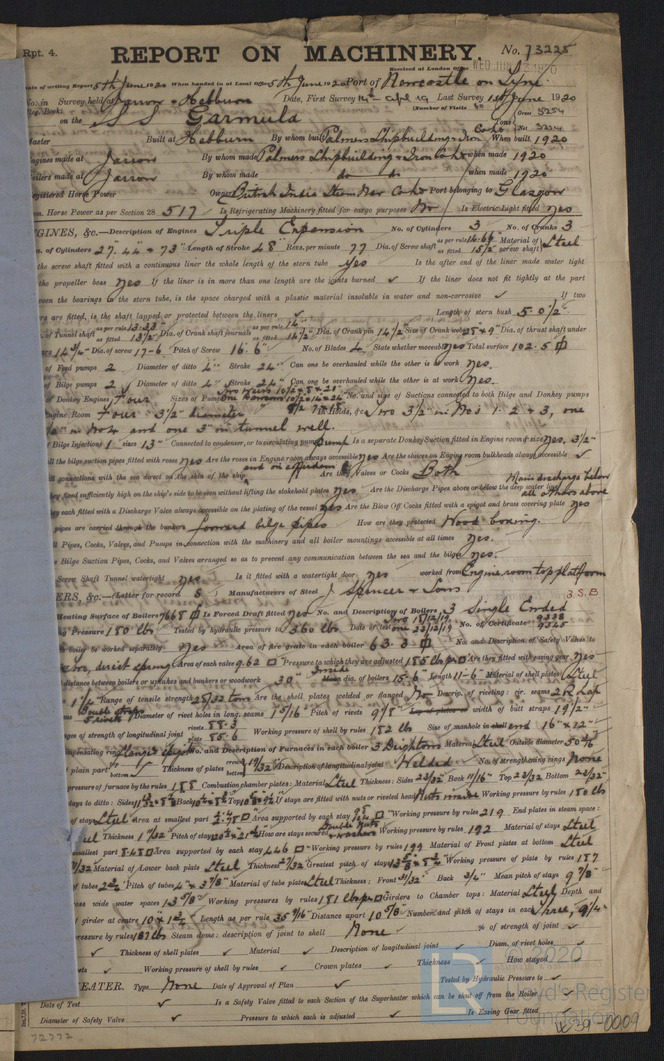 Rpt. 4.
REPORT ON MACHINERY. No. 73225
Received at London Office WED. JUN. 1920
Date of writing Report 5th June 1920 When handed in at Local Office 5th June 1920 Port of Newcastle on Tyne
No. in Survey held at Jarrow & Hebburn Date, First Survey 14th Apl 19 Last Survey 1st June 1920
Reg. Book. (Number of Visits
on the S S Garmula Gross 5254
Tons Net 3224
Master Built at Hebburn By whom built Palmers Shipbuilding & Iron Co Ld When built 1920
Engines made at Jarrow By whom made Palmers Shipbuilding & Iron Co Ld when made 1920
Boilers made at Jarrow By whom made do do when made 1920
Registered Horse Power Owners British India Steam Nav Co Ld Port belonging to Glasgow
Nom. Horse Power as per Section 28 517 Is Refrigerating Machinery fitted for cargo purposes No Is Electric Light fitted yes
GINES, &c.—Description of Engines Triple Expansion No. of Cylinders 3 No. of Cranks 3
of Cylinders 27" 44" & 73" Length of Stroke 48" Revs. per minute 77 Dia. of Screw shaft as per rule as fitted 15 1/2 Material of screw shaft Steel
the screw shaft fitted with a continuous liner the whole length of the stern tube yes Is the after end of the liner made water tight
the propeller boss yes If the liner is in more than one length are the joints burned ✓ If the liner does not fit tightly at the part
ween the bearings in the stern tube, is the space charged with a plastic material insoluble in water and non-corrosive ✓ If two
rs are fitted, is the shaft lapped or protected between the liners ✓ Length of stern bush 5-0 1/2"
of Tunnel shaft as per rule 13.33 as fitted 13 1/2 Dia. of Crank shaft journals as per rule 14" as fitted 14 1/2 Dia. of Crank pin 14 1/2 Size of Crank webs 25 x 9" Dia. of thrust shaft under
14 3/4" Dia. of screw 17-6 Pitch of Screw 16-6" No. of Blades 4 State whether moveable yes Total surface 102.5
of Feed pumps 2 Diameter of ditto 4" Stroke 24" Can one be overhauled while the other is at work yes.
of Bilge pumps 2 Diameter of ditto 4" Stroke 24" Can one be overhauled while the other is at work yes.
of Donkey Engines Four Sizes of Pumps No. and size of Suctions connected to both Bilge and Donkey pumps
Engine Room Four 3 1/2" diameter In Holds, &c. Two 3 1/2" in Nos 1. 2 & 3, one
in No 4 and one 3" in tunnel well.
f Bilge Injections 1 sizes 13" Connected to condenser, or to circulating pump pump Is a separate Donkey Suction fitted in Engine room & size yes, 3 1/2"
ll the bilge suction pipes fitted with roses yes Are the roses in Engine room always accessible yes Are the sluices on Engine room bulkheads always accessible ✓
l connections with the sea direct on the skin of the ship Are they Valves or Cocks Both
they fixed sufficiently high on the ship's side to be seen without lifting the stokehold plates yes Are the Discharge Pipes above or below the deep water line Main discharge below all others above
they each fitted with a Discharge Valve always accessible on the plating of the vessel yes Are the Blow Off Cocks fitted with a spigot and brass covering plate yes
pipes are carried through the bunkers forward bilge pipes How are they protected Wood boxing.
ll Pipes, Cocks, Valves, and Pumps in connection with the machinery and all boiler mountings accessible at all times yes.
e Bilge Suction Pipes, Cocks, and Valves arranged so as to prevent any communication between the sea and the bilge yes.
Screw Shaft Tunnel watertight yes Is it fitted with a watertight door yes worked from Engine room top platform
ERS, &c.—(Letter for record S) Manufacturers of Steel J Spencer & Sons 3 S.B.
Heating Surface of Boilers 7665 Is Forced Draft fitted yes No. and Description of Boilers 3 Single Ended
g Pressure 180 lbs Tested by hydraulic pressure to 360 lbs Date of test No. of Certificate
h boiler be worked separately yes Area of fire grate in each boiler 63.3 No. and Description of Safety Valves to
direct spring Area of each valve 9.62 Pressure to which they are adjusted 185 lbs Are they fitted with easing gear yes
distance between boilers or uptakes and bunkers or woodwork 30" dia. of boilers 15-6 Length 11-6" Material of shell plates Steel
1 1/4" Range of tensile strength 28/32 tons Are the shell plates welded or flanged No Descrip. of riveting: cir. seams 2R Lap
Diameter of rivet holes in long. seams 1 5/16 Pitch of rivets 9 1/8 width of butt straps 19 1/2"
ges of strength of longitudinal joint rivets 88.3 plate 85.6 Working pressure of shell by rules 182 lbs Size of manhole in end 16" x 12"
No. and Description of Furnaces in each boiler 3 Deightons Material Steel Outside diameter
plain part Thickness of plates Description of longitudinal joint Welded No. of strengthening rings None
pressure of furnace by the rules 188 Combustion chamber plates: Material Steel Thickness: Sides 23/32 Back 11/16" Top 23/32 Bottom 23/32
ays to ditto: Sides Back Top If stays are fitted with nuts or riveted heads Nuts inside Working pressure by rules 180 lb
of stays Steel Area at smallest part Area supported by each stay Working pressure by rules 219 End plates in steam space:
Thickness 1 1/32 Pitch of stays How are stays secured Double Nuts & washers Working pressure by rules 192 Material of stays Steel
smallest part Area supported by each stay 446 Working pressure by rules 199 Material of Front plates at bottom Steel
Material of Lower back plate Steel Thickness 27/32 Greatest pitch of stays Working pressure of plate by rules 187
of tubes 2 1/2" Pitch of tubes 4 x 3 7/8" Material of tube plates Steel Thickness: Front 31/32" Back 3/4" Mean pitch of stays 9 7/8"
ss wide water spaces 13 5/8" Working pressures by rules 181 lbs Girders to Chamber tops: Material Steel Depth and
girder at centre Length as per rule Distance apart 10 5/8" Number and pitch of stays in each Three, 9 1/4"
pressure by rules 187 lbs Steam dome: description of joint to shell None % of strength of joint ✓
✓ Thickness of shell plates ✓ Material ✓ Description of longitudinal joint ✓ Diam. of rivet holes ✓
ets ✓ Working pressure of shell by rules ✓ Crown plates ✓ Thickness ✓ How stayed ✓
EATER. Type None Date of Approval of Plan ✓ Tested by Hydraulic Pressure to ✓
Date of Test ✓ Is a Safety Valve fitted to each Section of the Superheater which can be shut off from the Boiler ✓
Diameter of Safety Valve ✓ Pressure to which each is adjusted ✓ Is Easing Gear fitted ✓
2020
Lloyd's Register
Foundation
W39-0009